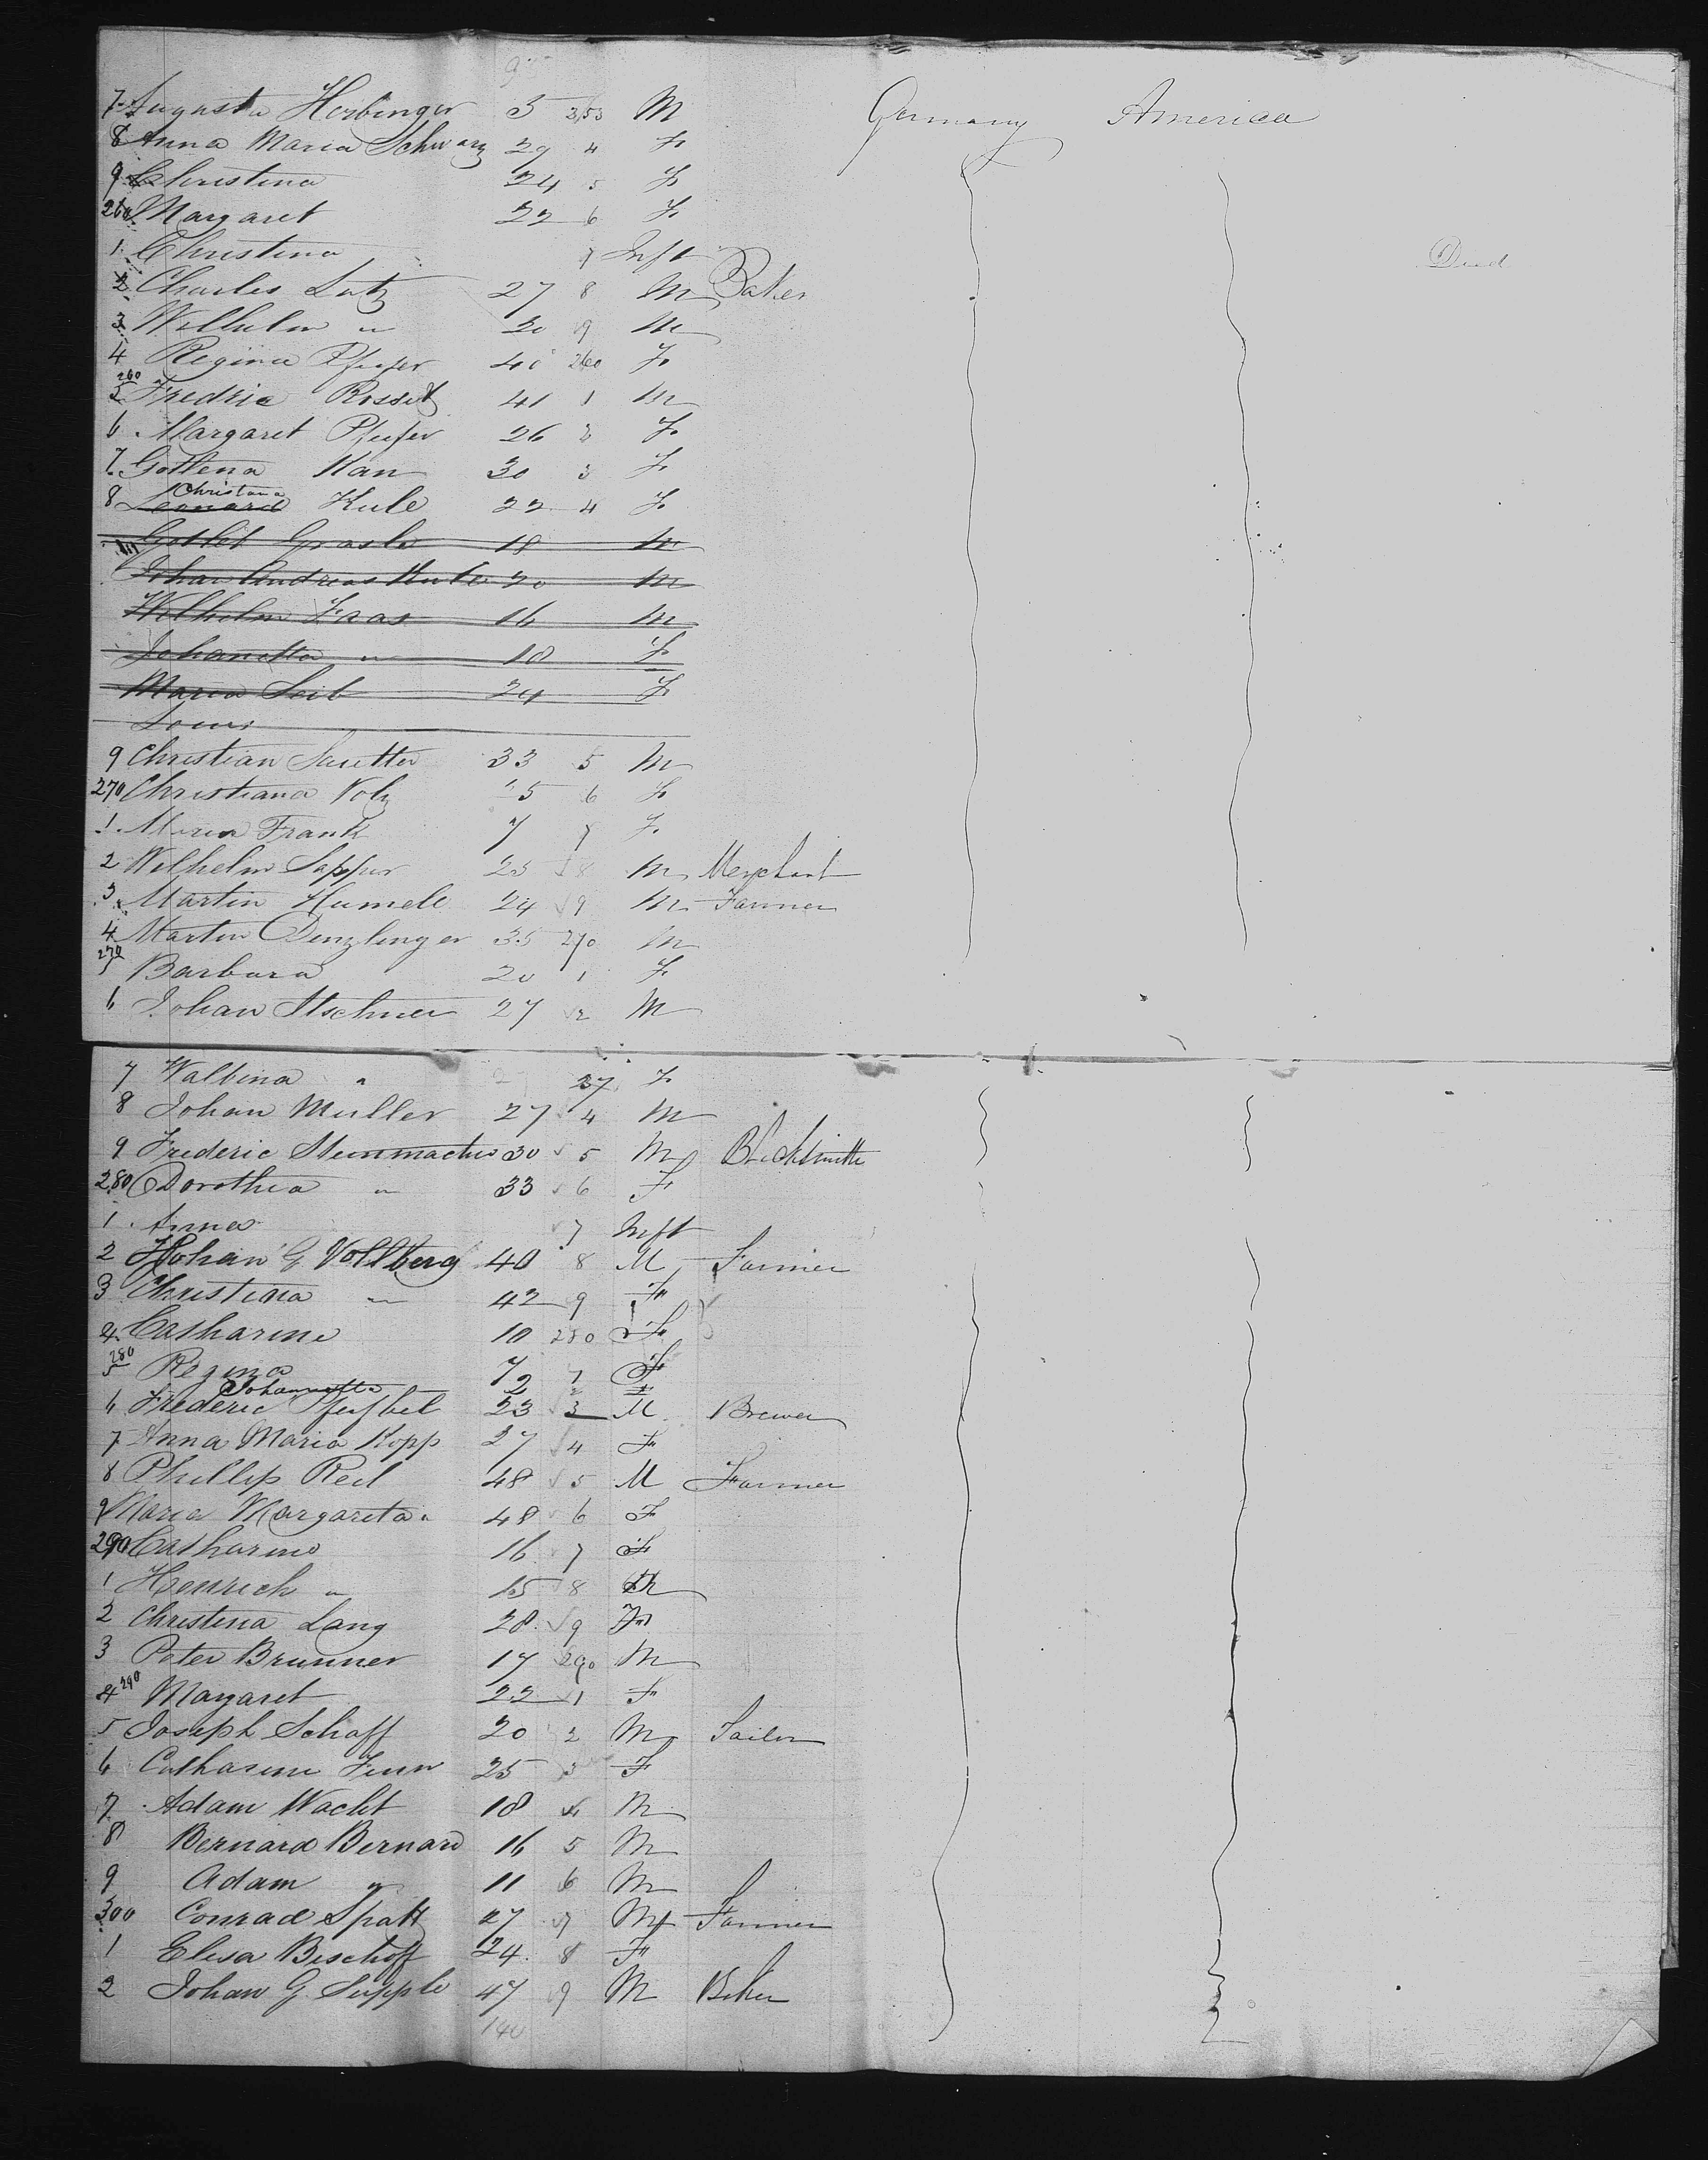 7 Augusta Herbinger 5 253 M Germany America
8 Anna Maria Schwarz 29 4 F
9 Christina 24 5 F
260 Margaret 22 6 F
1 Christina 7 Inft Died
2 Charles Lutz 27 8 M Baker
3 Wilhelm " 20 9 M
4 Regina Pfeifer 40 260 F
260 5 Fredric Rosset 41 1 M
6 Margaret Pfeifer 26 2 F
7 Gottlena Kan 30 3 F
8 Leonard Christana Kule 22 4 F
Gotleb 18 M
Johan Andreas 20 M
Wilhelm Faas 16 M
Johanetta " 18 F
Maria Seib 24 F
Louis
9 Christian Sautter 33 5 M
270 Christiana Volz 25 6 F
1 Maria Frank 7 7 F
2 Wilhelm Sapper 25 8 M Merchant
3 Martin Humele 24 9 M Farmer
4 Martin Denzlinger 35 270 M
270 5 Barbara 20 1 F
6 Johan Itschner 27 2 M
7 Walbina " 27 F
8 Johan Muller 27 4 M
9 Frederic Steinmacher 30 5 M Blacksmith
280 Dorothea " 33 6 F
1 Anna 7 Inft
2 Johan G Vollberg 40 8 M Farmer
3 Christina " 42 9 F
4 Catharine 10 280 F
280 5 Regina 7 1 F
Johannetta 2 2 F
6 Frederic 23 3 M Brewer
7 Anna Maria Kopp 27 4 F
8 Phillip Reil 48 5 M Farmer
9 Maria Margareta " 48 6 F
290 Catharine 16 7 F
1 Henrich " 15 8 M
2 Christina Lang 28 9 F
3 Peter Brunner 17 290 M
4 290 Margaret 22 1 F
5 Joseph Schaff 20 2 M Tailor
6 Catharine 25 3 F
7 Adam Wacht 18 4 M
8 Bernard Bernard 16 5 M
9 Adam " 11 6 M
300 Conrad Spatt 27 7 M Farmer
1 Elisa Bischoff 24 8 F
2 Johan G Supple 47 9 M Baker
140